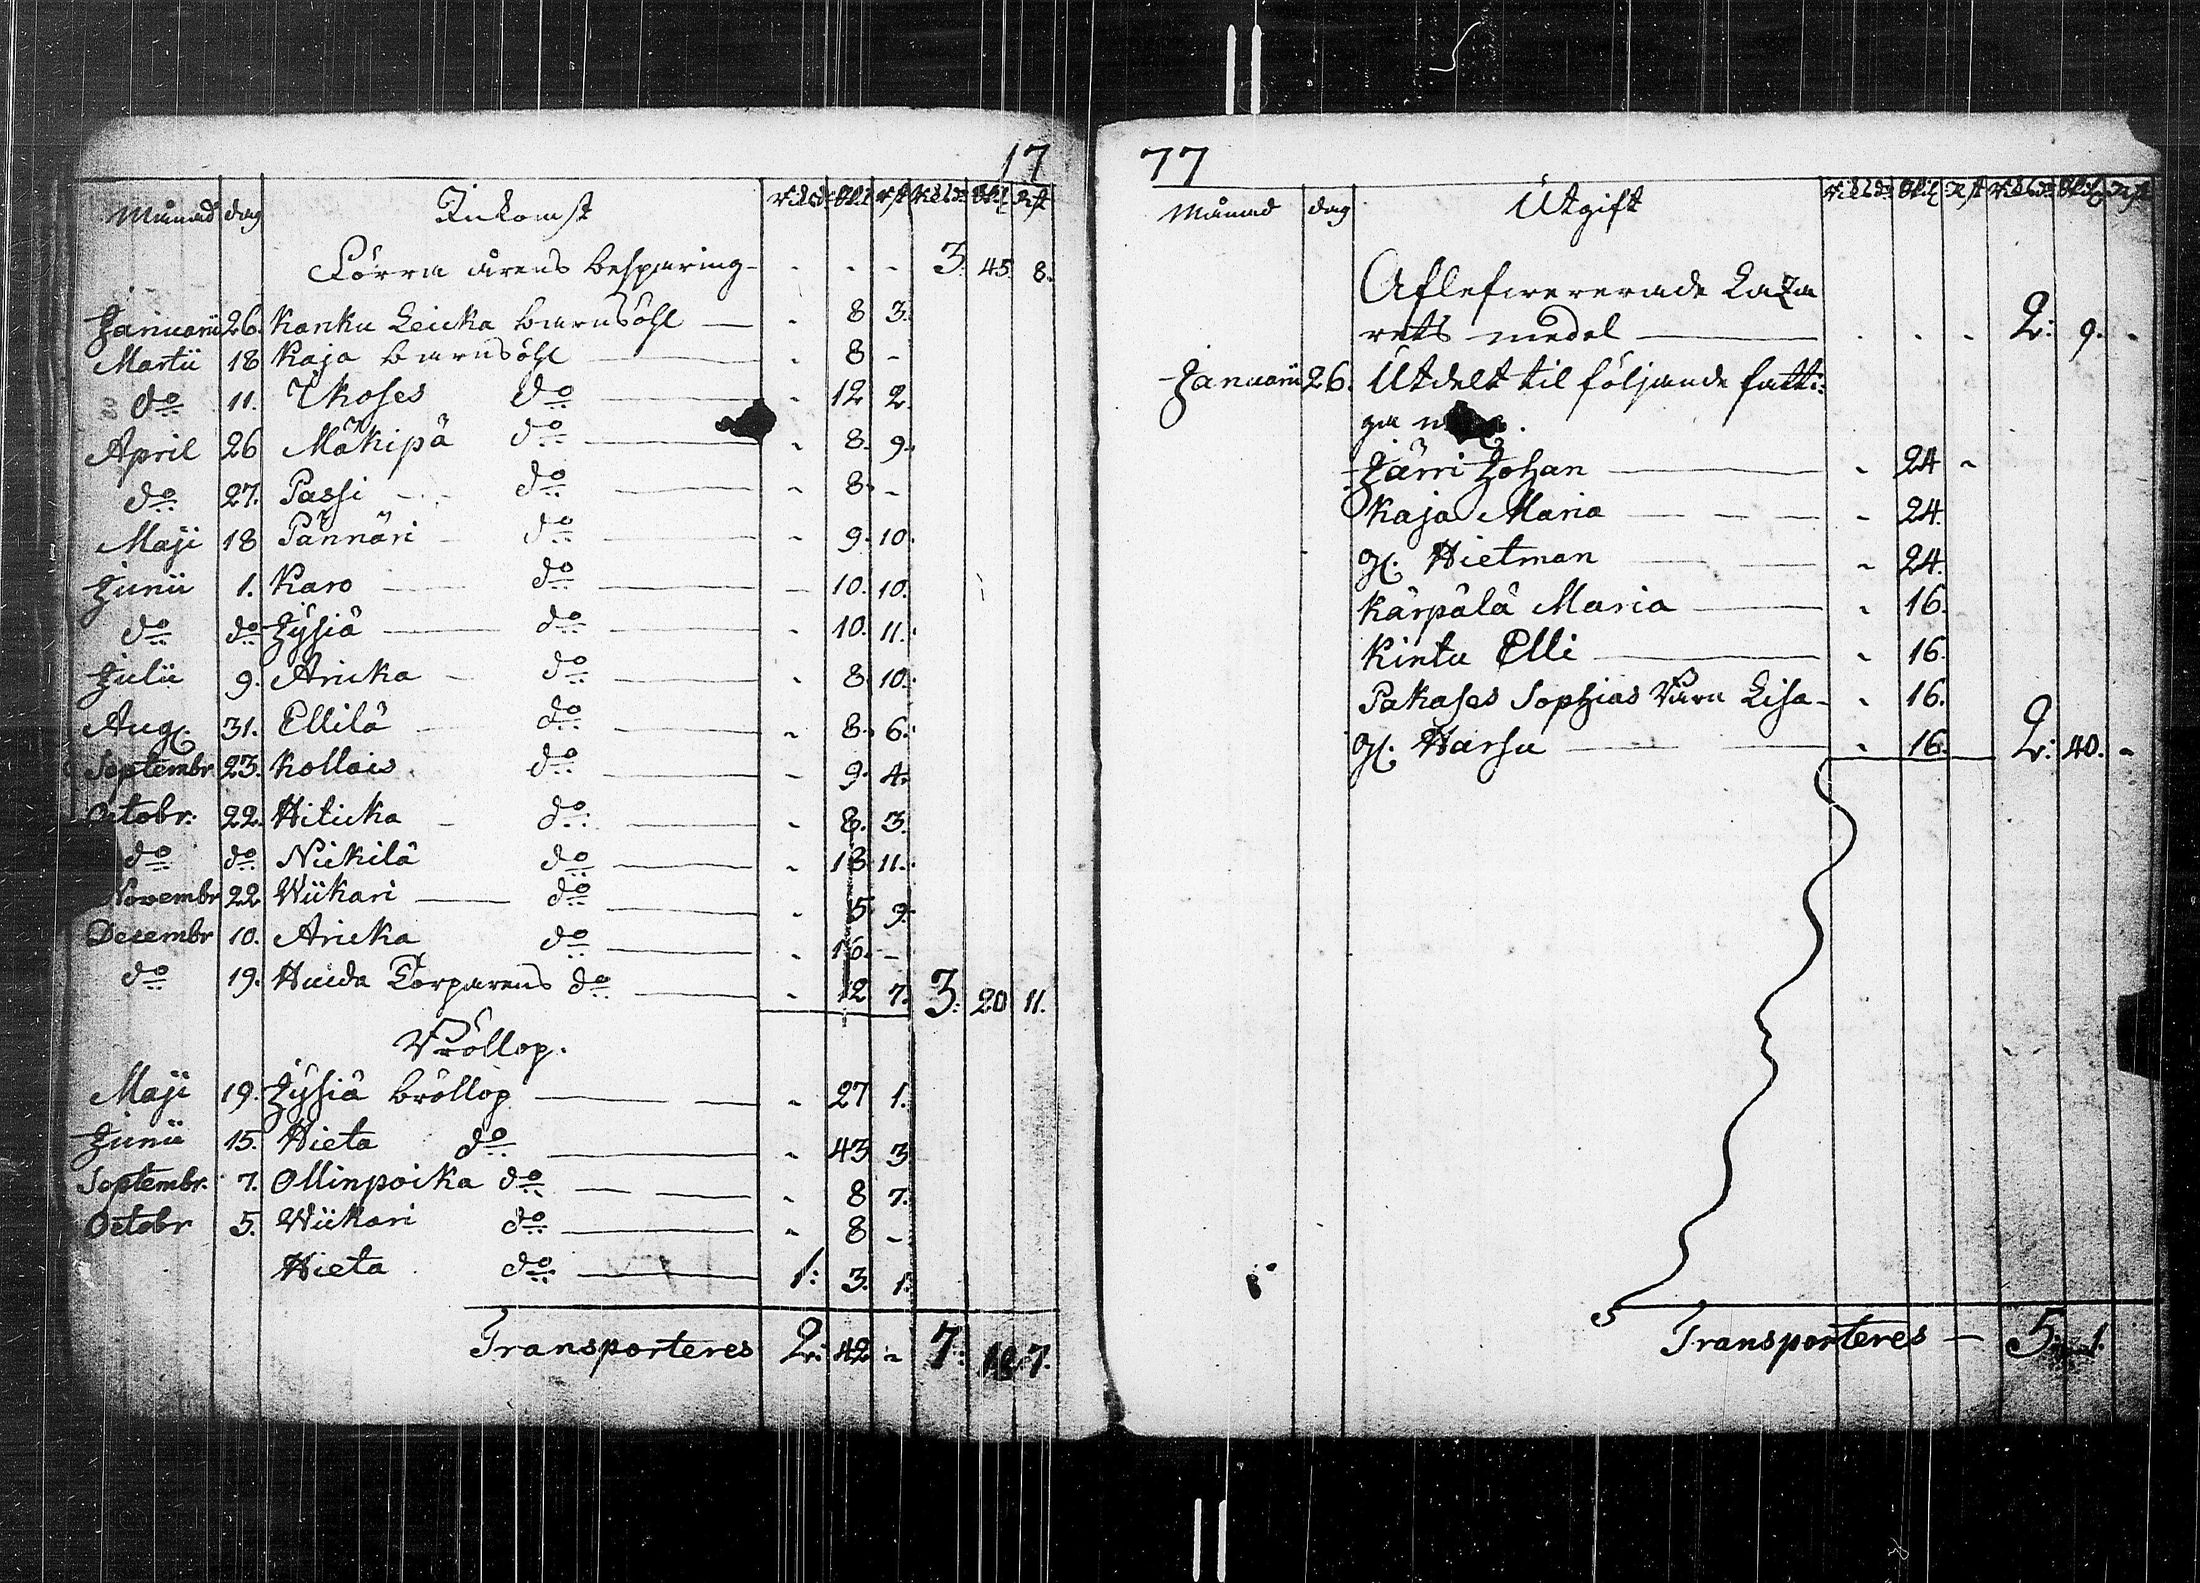 17
Månad dag Inkomst Riksd: Skil rst Riksd: Skil rst
Förra årens besparing - - - 3. 45. 8.
Januarii 26. Kanku Leicka barnsöhl - 8 3.
Martii 18 Kaja barnsöhl - 8 -
do 11. Ikoses do - 12 2.
April 26 Mäkipä do - 8. 9.
do 27. Passi do - 8. -
Maji 18 Pännäri do - 9. 10.
Junii 1. Karo do - 10. 10.
do do Jysiä do - 10. 11.
Julii 9. Aricka do - 8. 10.
Aug. 31. Ellilä do - 8. 6.
Septembr 23. Kollais do - 9. 4.
Octobr. 22. Hiticka do - 8. 3.
do do Niikilä do - 18. 11.
Novembr 22 Wiikari do - 5 9.
Decembr 10. Aricka do - 16. -
do 19. Huida Torparens do - 12 7. 3: 20 11.
Bröllop.
Maji 19. Jysiä bröllop - 27 1.
Junii 15. Hieta do - 43 3
Septembr. 7. Ollinpoika do - 8 7.
Octobr 5. Wiikari do - 8 -
Hieta do 1: 3. 1.
Transporteres 2: 42 - 7: 18 7.
77
Månad dag Utgift Riksd: Skil rst Riksd: Skil rst
Aflefwererade Laza
rets medel - - - 2: 9. -
Januarii 26. Utdelt til följande fatti:
ga
Järri Johan - 24 -
Kaja Maria - 24.
gl. Hietman - 24.
Kärpälä Maria - 16.
Kintu Elli - 16.
Pakases Sophias Barn Lisa - - 16.
gl. Harsu - 16. 2: 40. -
Transporteres - 5: 1.